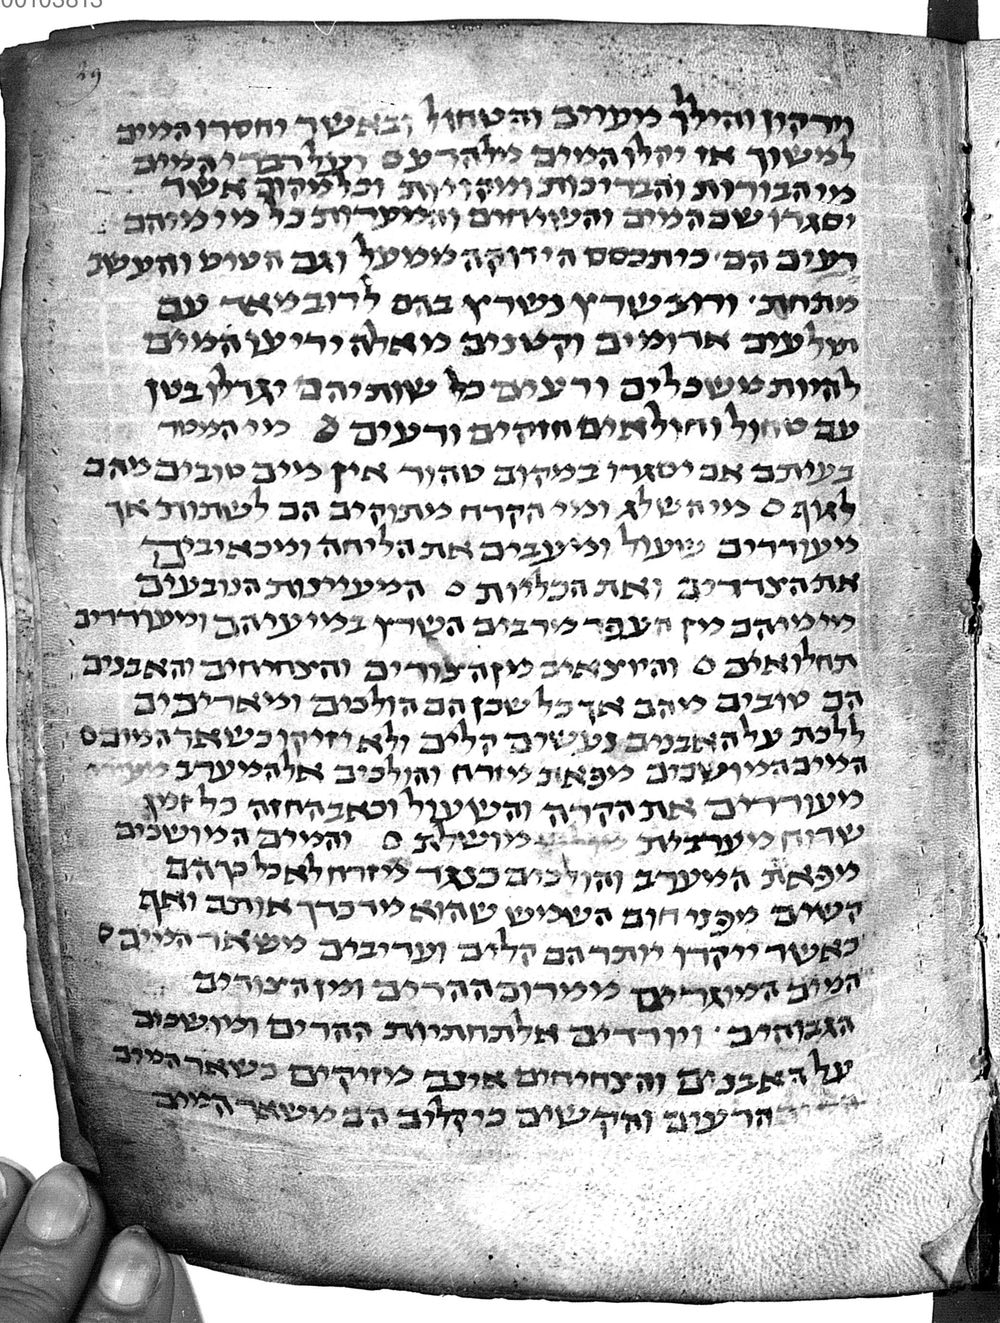 00103813
29
וירקון והילך מעיים והטחול ובאשר יחסרו המים
למשוך או יקלו המים מלהרעם ועל הרבדי המים
מי הבורות והבריכות ומקואות וכל מקום אשר
יסגרו שם המים והשיחים והמערות כל מימיהם
רעים הם כי תכסם הירוקה ממעל וגם הטיט והעשב
מתחת ורוב שרץ נשרץ בהם לרוב מאד עם
תולעים אדומים וקטנים מאלה יריעו המים
להיות משכלים ורעים כל שותיהם יגדלו בטן
עם טחול וחולאים חזקים ורעים מי המטר
בעיתם אם יסגרו במקום טהור אין מים טובים מהם
לגוף מי השלג ומי הקרח מתוקים הם לשתות אך
מעוררים שעול ומעבים את הליחה ומכאיבים
את הצדדים ואת הכליות המעיינות הנובעים
מימיהם מן העפר מרבים השרץ במיעיהם ומעוררים
תחלואים והיוצאים מן הצורים והצחיחים והאבנים
הם טובים מהם אך כל שכן הם הולכים ומאריכים
ללכת על האבנים נעשים קלים ולא יזיקו כשאר המים
המים המושכים מפאת מזרח והולכים אל המערב
מעוררים את הקרה והשעול וכאב החזה כל זמן
שרוח מערבית מושלת והמים המושכים
מפאת המערב והולכים כנגד מזרח לא כל כך הם
קשים מפני חום השמש שהוא מדכדך אותם ואף
כאשר ייקדו יותר הם קלים ועריבים משאר המים
המים המוגרים ממרום ההרים ומן הצורים
הגבוהים ויורדים אל תחתיות ההרים ומושכים
על האבנים והצחיחים אינם מזיקים כשאר המים
הרעים והקשים כי קלים הם משאר המים